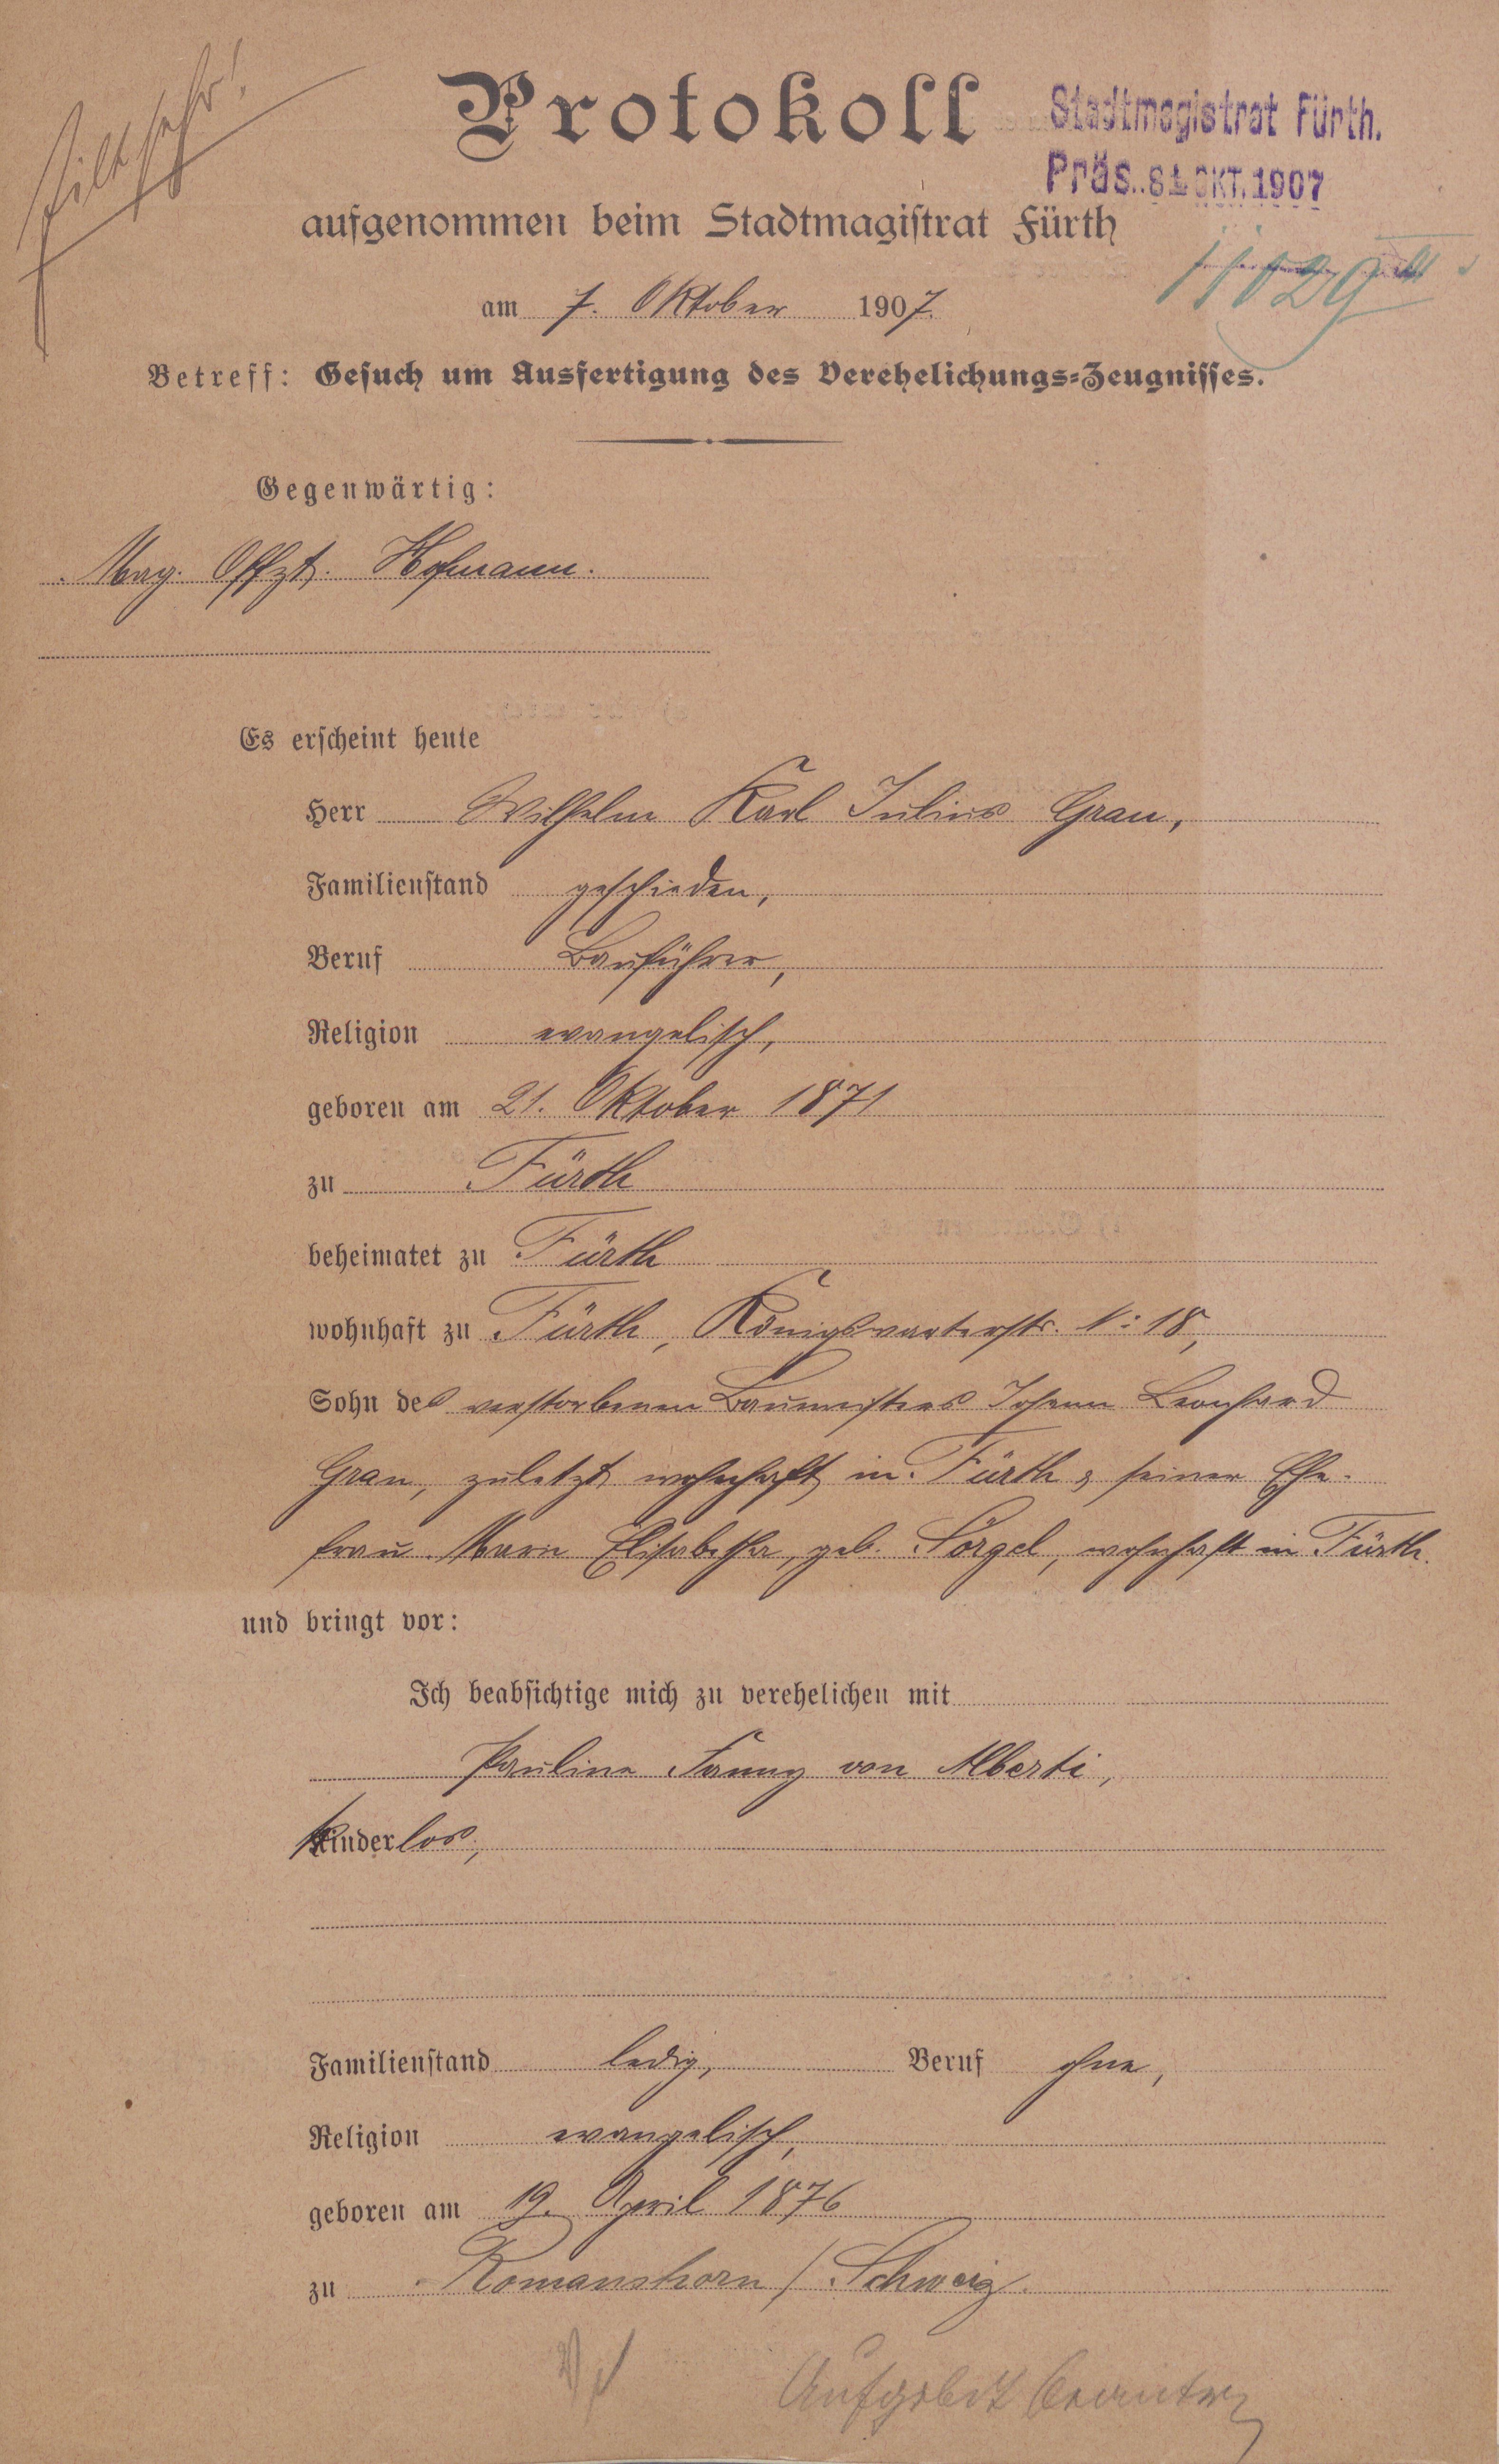 Eilt sehr!
Protokoll
Stadtmagistrat Fürth.
Präs. 8. OKT. 1907
aufgenommen beim Stadtmagistrat Fürth
am 7. Oktober 1907.
11029
Betreff: Gesuch um Ausfertigung des Verehelichungs-Zeugnisses.
Gegenwärtig:
Mag. Offzt. Hofmann.
Es erscheint heute
Herr Wilhelm Karl Julius Gran,
Familienstand geschieden,
Beruf Bauführer,
Religion evangelisch,
geboren am 21. Oktober 1871
zu Fürth
beheimatet zu Fürth
wohnhaft zu Fürth, Königswarterstr. N: 18,
Sohn des verstorbenen Baumeisters Johann Leonhard
Gran, zuletzt wohnhaft in Fürth & seiner Ehe-
frau Elisabetha, geb. Sörgel, wohnhaft in Fürth.
und bringt vor:
Ich beabsichtige mich zu verehelichen mit
Pauline Fanny von Alberti,
kinderlos,
Familienstand ledig, Beruf ohne,
Religion evangelisch,
geboren am 19. April 1876
zu Romanshorn / Schweiz.
Aufgebot